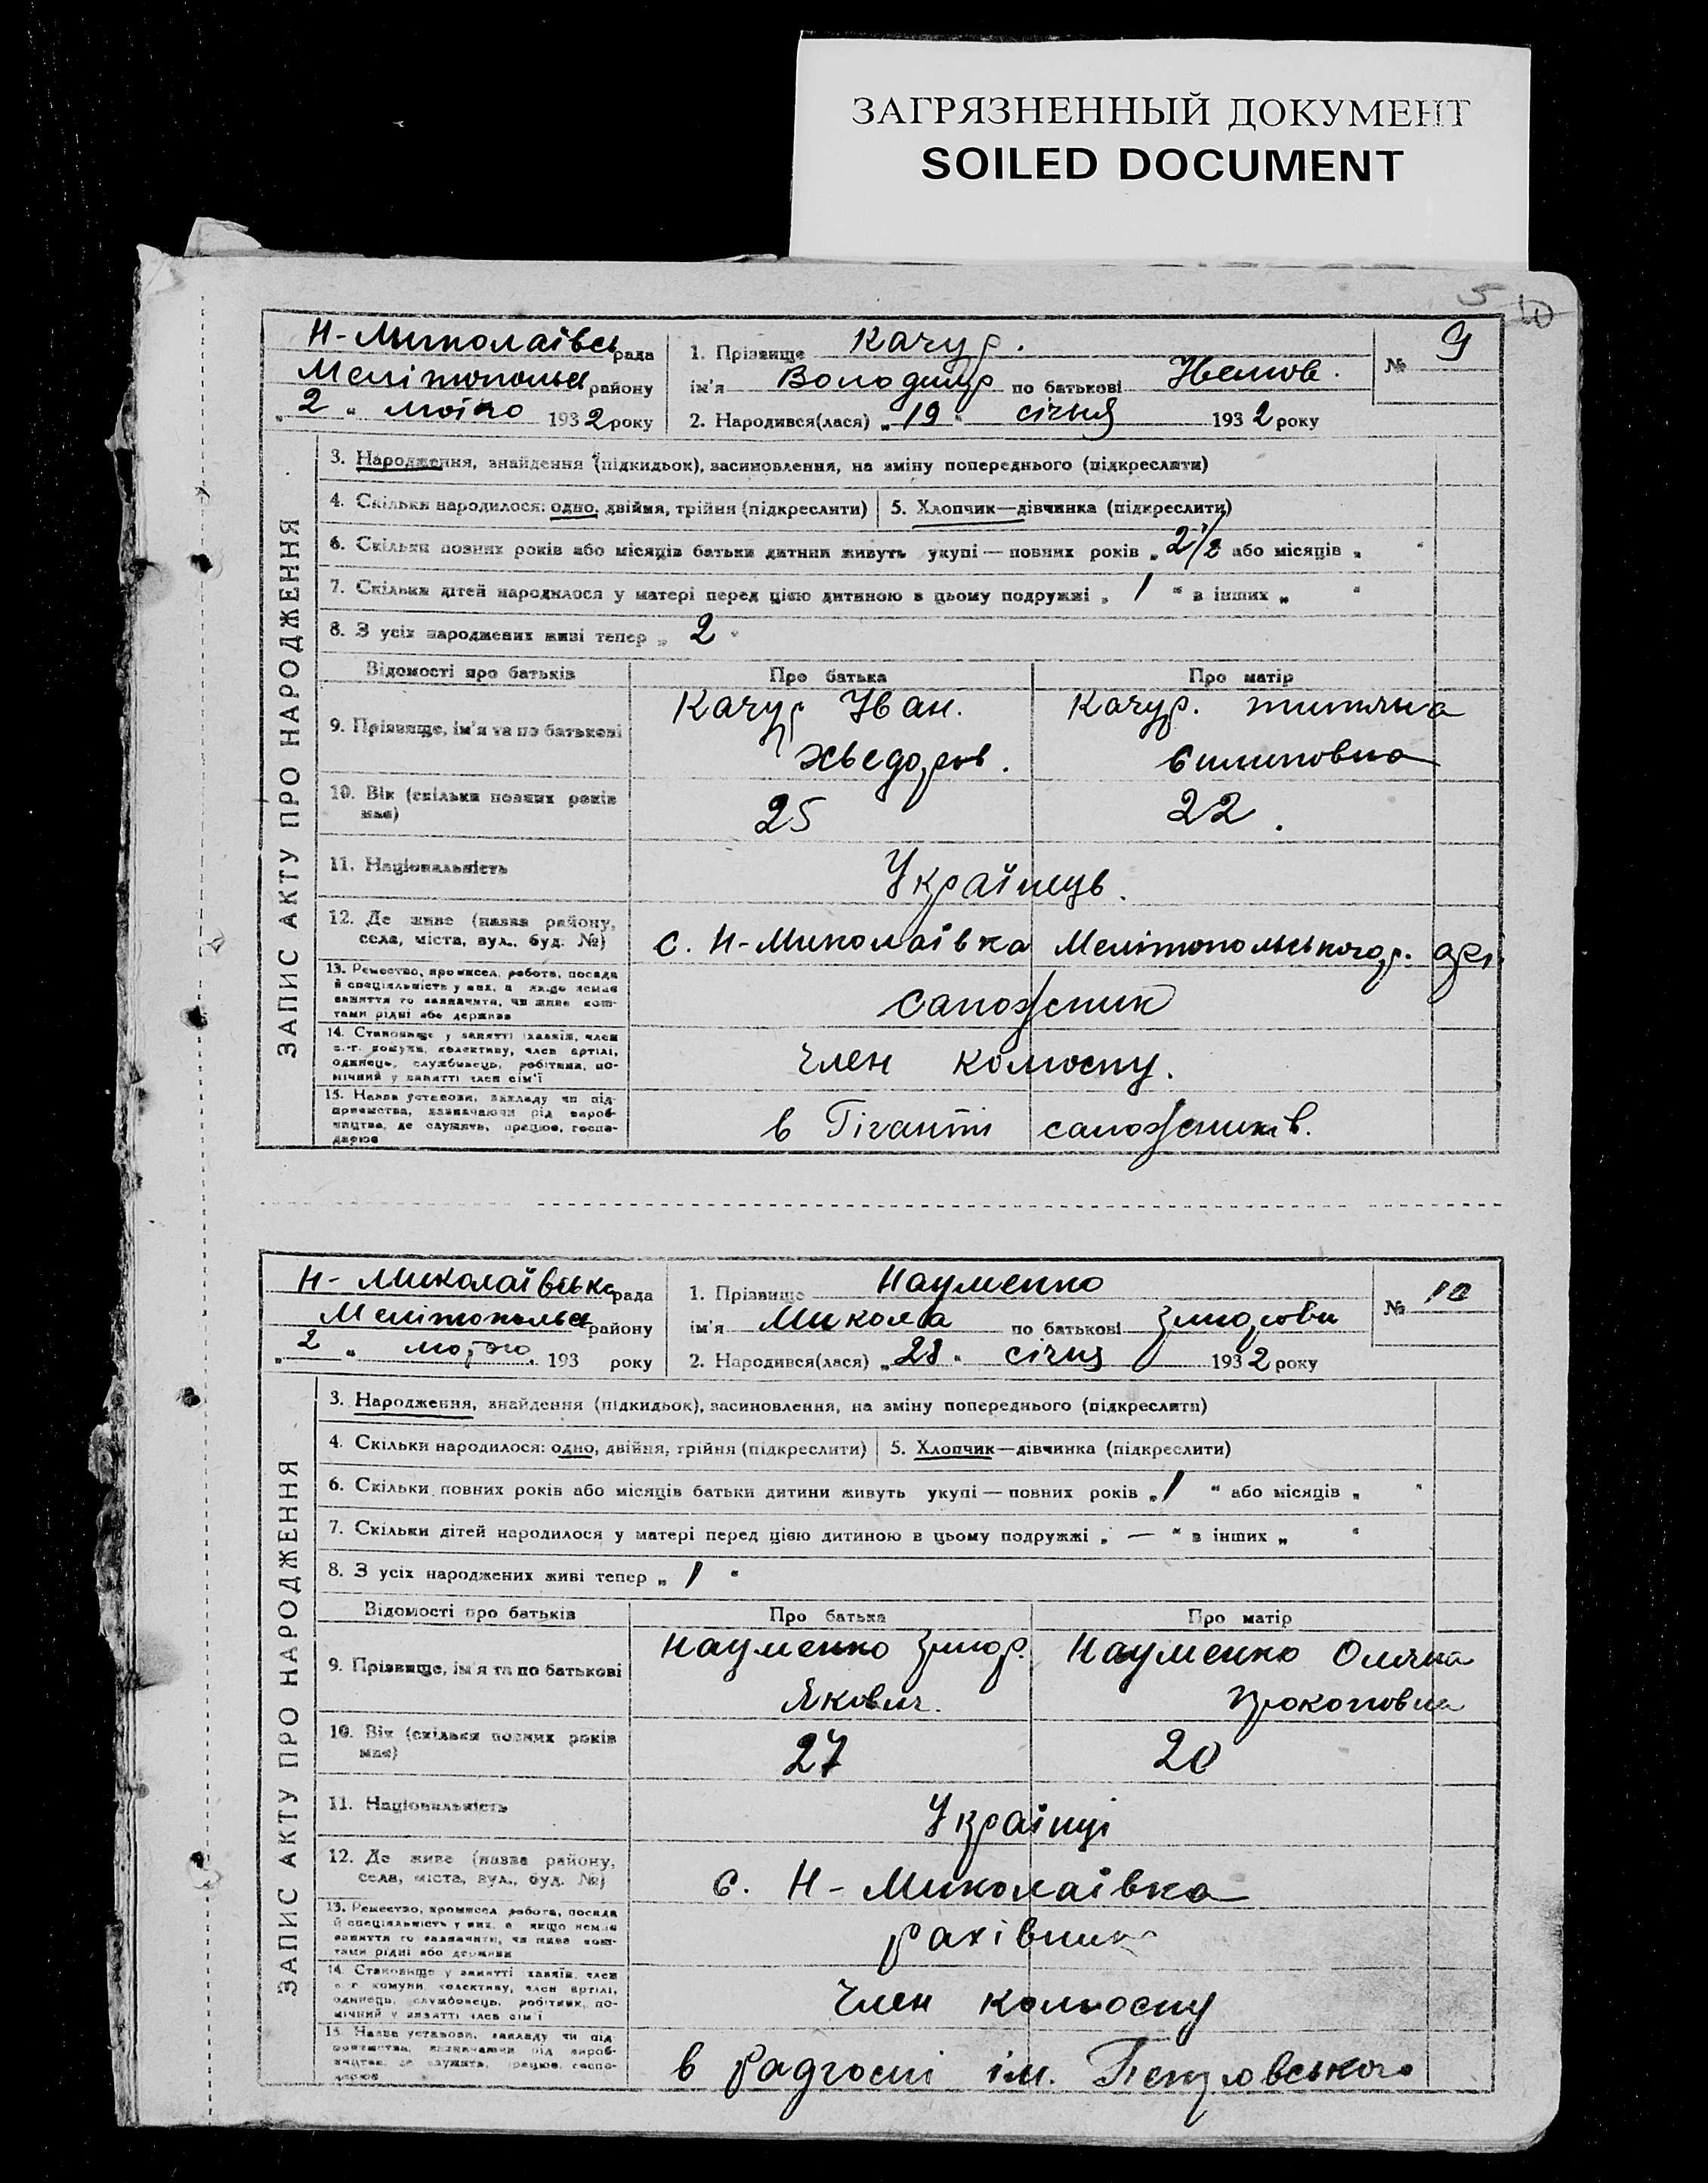 ЗАГРЯЗНЕННЫЙ ДОКУМЕНТ
SOILED DOCUMENT
5 10
Н-Миколаївсь рада
Мелітопольсь району
„ 2 “ 1932 року
1. Прізвище Качур.
ім'я Володимир по батькові Иванов.
2. Народився(лася) „ 19 “ січня 1932 року
№ 9
ЗАПИС АКТУ ПРО НАРОДЖЕННЯ
3. Народження, знайдення (підкидьок), засиновлення, на зміну попереднього (підкреслити)
4. Скільки народилося: одно, двійня, трійня (підкреслити) 5. Хлопчик—дівчинка (підкреслити)
6. Скільки повних років або місяців батьки дитини живуть укупі — повних років „ 2 1/2 або місяців „ “
7. Скільки дітей народилося у матері перед цією дитиною в цьому подружжі „ 1 “ в інших „ “
8. З усіх народжених живі тепер „ 2 “
Відомості про батьків Про батька Про матір
9. Прізвище, ім'я та по батькові
Качур Иван. Качур.
Хведоров.
10. Вік (скільки повних років
має)
25 22.
11. Національність
Українців.
12. Де живе (назва району,
села, міста, вул., буд. №)
с. Н-Миколаівка Мелітопольського р.
13. Ремество, промисел, робота, посада
й спеціальність у них, а якщо немає
заняття то зазначити, чи живе кош-
тами рідні або держави
сапожник
14. Становище у занятті хазяїн, член
с.-г. комуни, колективу, член артілі,
одинець, службовець, робітник, по-
мічний у занятті член сім'ї
член колгоспу.
15. Назва установи, закладу чи під-
приємства, зазначаючи рід вироб-
ництва, де служить, працює, госпо-
дарює
в Гіганті сапожників.
Н- Миколаївська рада
Мелітопольсь району
„ 2 “ 193 року
1. Прізвище Науменко
ім'я Микола по батькові
2. Народився(лася) „ 28 “ січня 1932 року
№ 10
ЗАПИС АКТУ ПРО НАРОДЖЕННЯ
3. Народження, знайдення (підкидьок), засиновлення, на зміну попереднього (підкреслити)
4. Скільки народилося: одно, двійня, трійня (підкреслити) 5. Хлопчик—дівчинка (підкреслити)
6. Скільки повних років або місяців батьки дитини живуть укупі — повних років „ 1 “ або місяців „ “
7. Скільки дітей народилося у матері перед цією дитиною в цьому подружжі „ — “ в інших „ “
8. З усіх народжених живі тепер „ 1 “
Відомості про батьків Про батька Про матір
9. Прізвище, ім'я та по батькові
Науменко Науменко Оляна
Якович. Прокоповна
10. Вік (скільки повних років
має)
27 20
11. Національність
Українці
12. Де живе (назва району,
села, міста, вул., буд. №)
с. Н - Миколаівка
13. Ремество, промисел, робота, посада
й спеціальність у них, а якщо немає
заняття то зазначити, чи живе кош-
тами рідні або держави
рахівник
14. Становище у занятті хазяїн, член
с.-г. комуни, колективу, член артілі,
одинець, службовець, робітник, по-
мічний у занятті член сім'ї
член колгоспу
15. Назва установи, закладу чи під-
приємства, зазначаючи рід вироб-
ництва, де служить, працює, госпо-
дарює
в Радгоспі ім. Петровського